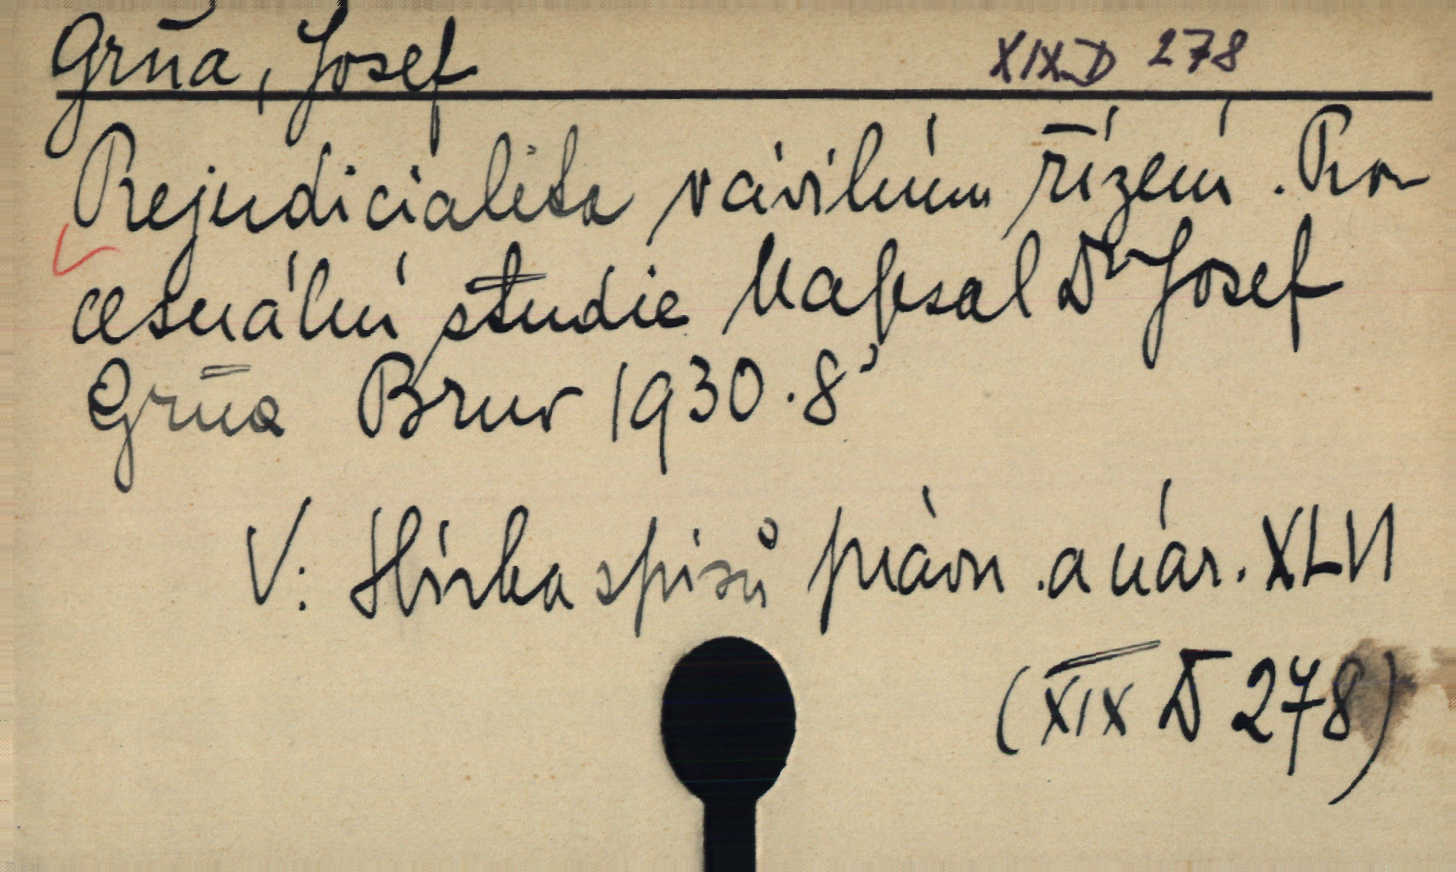 Grňa, Josef XIX D 278
Prejudicialita v civilním řízení. Pro-
cesuální studie Napsal Dr Josef
Grňa Brno 1930. 8°
V: Sbírka spisů právn. a nár. XLVI
(XIX D 278)